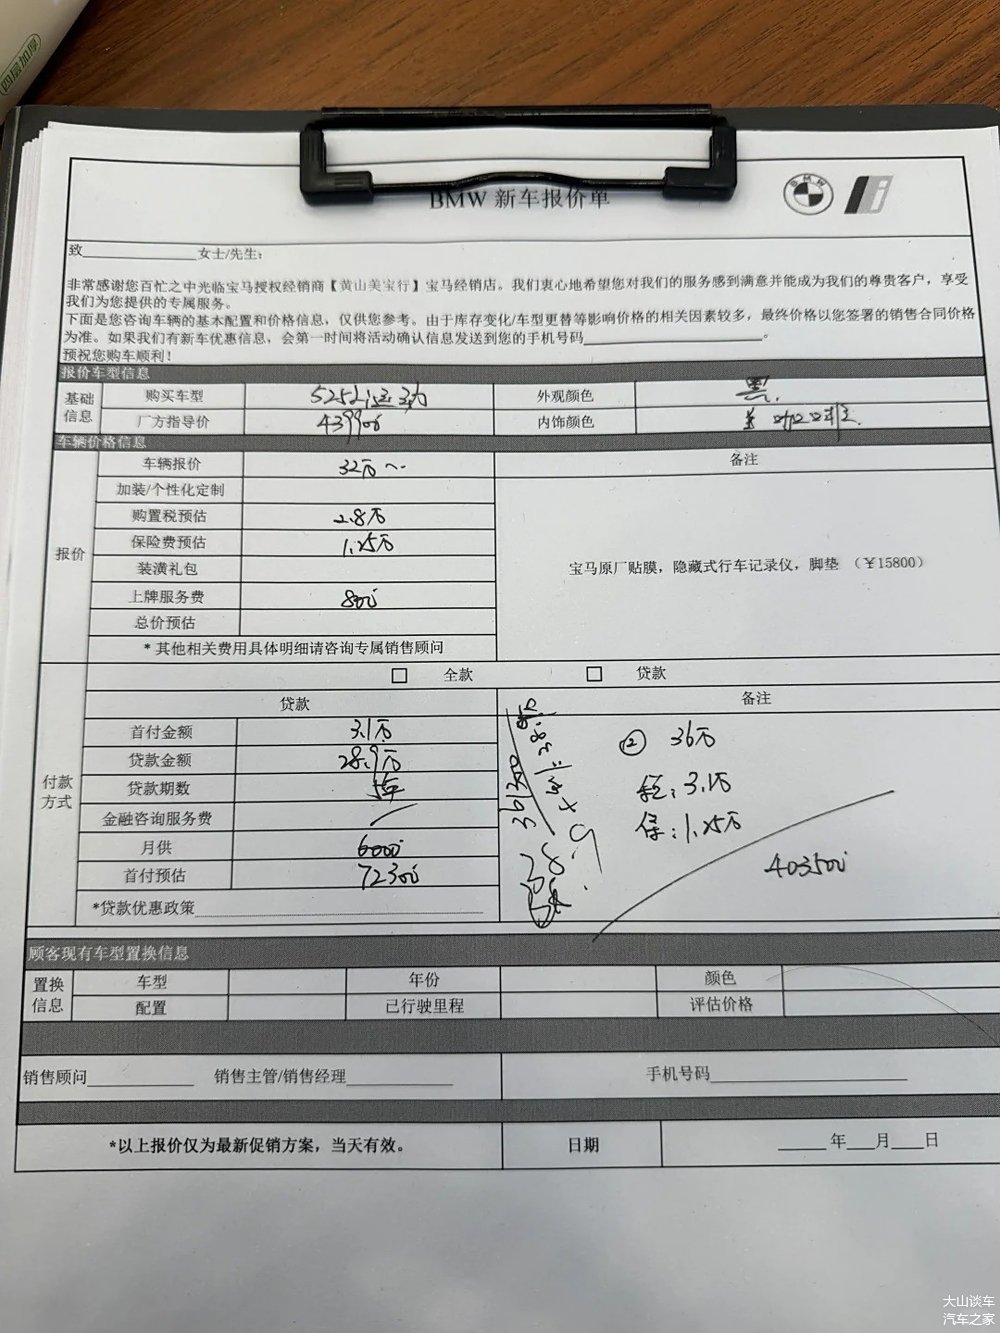 四层加厚
BMW 新车报价单
BMW
致 女士/先生：
非常感谢您百忙之中光临宝马授权经销商【黄山美宝行】宝马经销店。我们衷心地希望您对我们的服务感到满意并能成为我们的尊贵客户，享受
我们为您提供的专属服务。
下面是您咨询车辆的基本配置和价格信息，仅供您参考。由于库存变化/车型更替等影响价格的相关因素较多，最终价格以您签署的销售合同价格
为准。如果我们有新车优惠信息，会第一时间将活动确认信息发送到您的手机号码 。
预祝您购车顺利！
报价车型信息
基础信息 购买车型 525Li 外观颜色 黑.
厂方指导价 439900 内饰颜色
车辆价格信息
报价 车辆报价 32万~ 备注
加装/个性化定制
购置税预估 2.8万
保险费预估 1.25万
装潢礼包 宝马原厂贴膜，隐藏式行车记录仪，脚垫 （￥15800）
上牌服务费 800
总价预估
* 其他相关费用具体明细请咨询专属销售顾问
付款方式 □ 全款 □ 贷款
贷款 备注
首付金额 3.1万 ② 36万
贷款金额 28.9万
贷款期数 5年 3.1万
金融咨询服务费 保：1.25万
月供 6000 403500
首付预估 72300
361300
*贷款优惠政策
顾客现有车型置换信息
置换信息 车型 年份 颜色
配置 已行驶里程 评估价格
销售顾问 销售主管/销售经理 手机号码
*以上报价仅为最新促销方案，当天有效。 日期 年 月 日
大山谈车
汽车之家